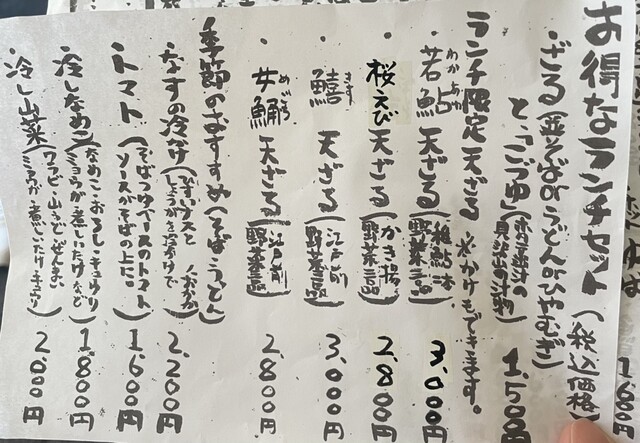 お得なランチセット(税込価格)
ざる(並そばorうどんorひやむぎ)
と、「こづゆ」(会津の具沢山の汁物) 1,500円
ランチ限定天ざる 水かけもできます。
・若鮎 わかあゆ 天ざる(稚鮎一本 野菜三品) 3,000円
・桜えび 天ざる(かき揚 野菜三品) 2,800円
・鱚 きす 天ざる(江戸前 野菜三品) 3,000円
・女鯒 めごち 天ざる(江戸前 野菜三品) 2,800円
季節のおすすめ(そば、うどん)
なすの冷かけ 2,200円
トマト(そばつゆベースのトマトソースがそばの上に。) 1,600円
冷しなめこ(なめこ・おろし・キュウリ ミョウガ 煮しいたけなど) 1,800円
冷し山菜(ワラビ・山うど・ぜんまい、ミョウガ 煮しいたけ・キュウリ) 2,000円
1,600円